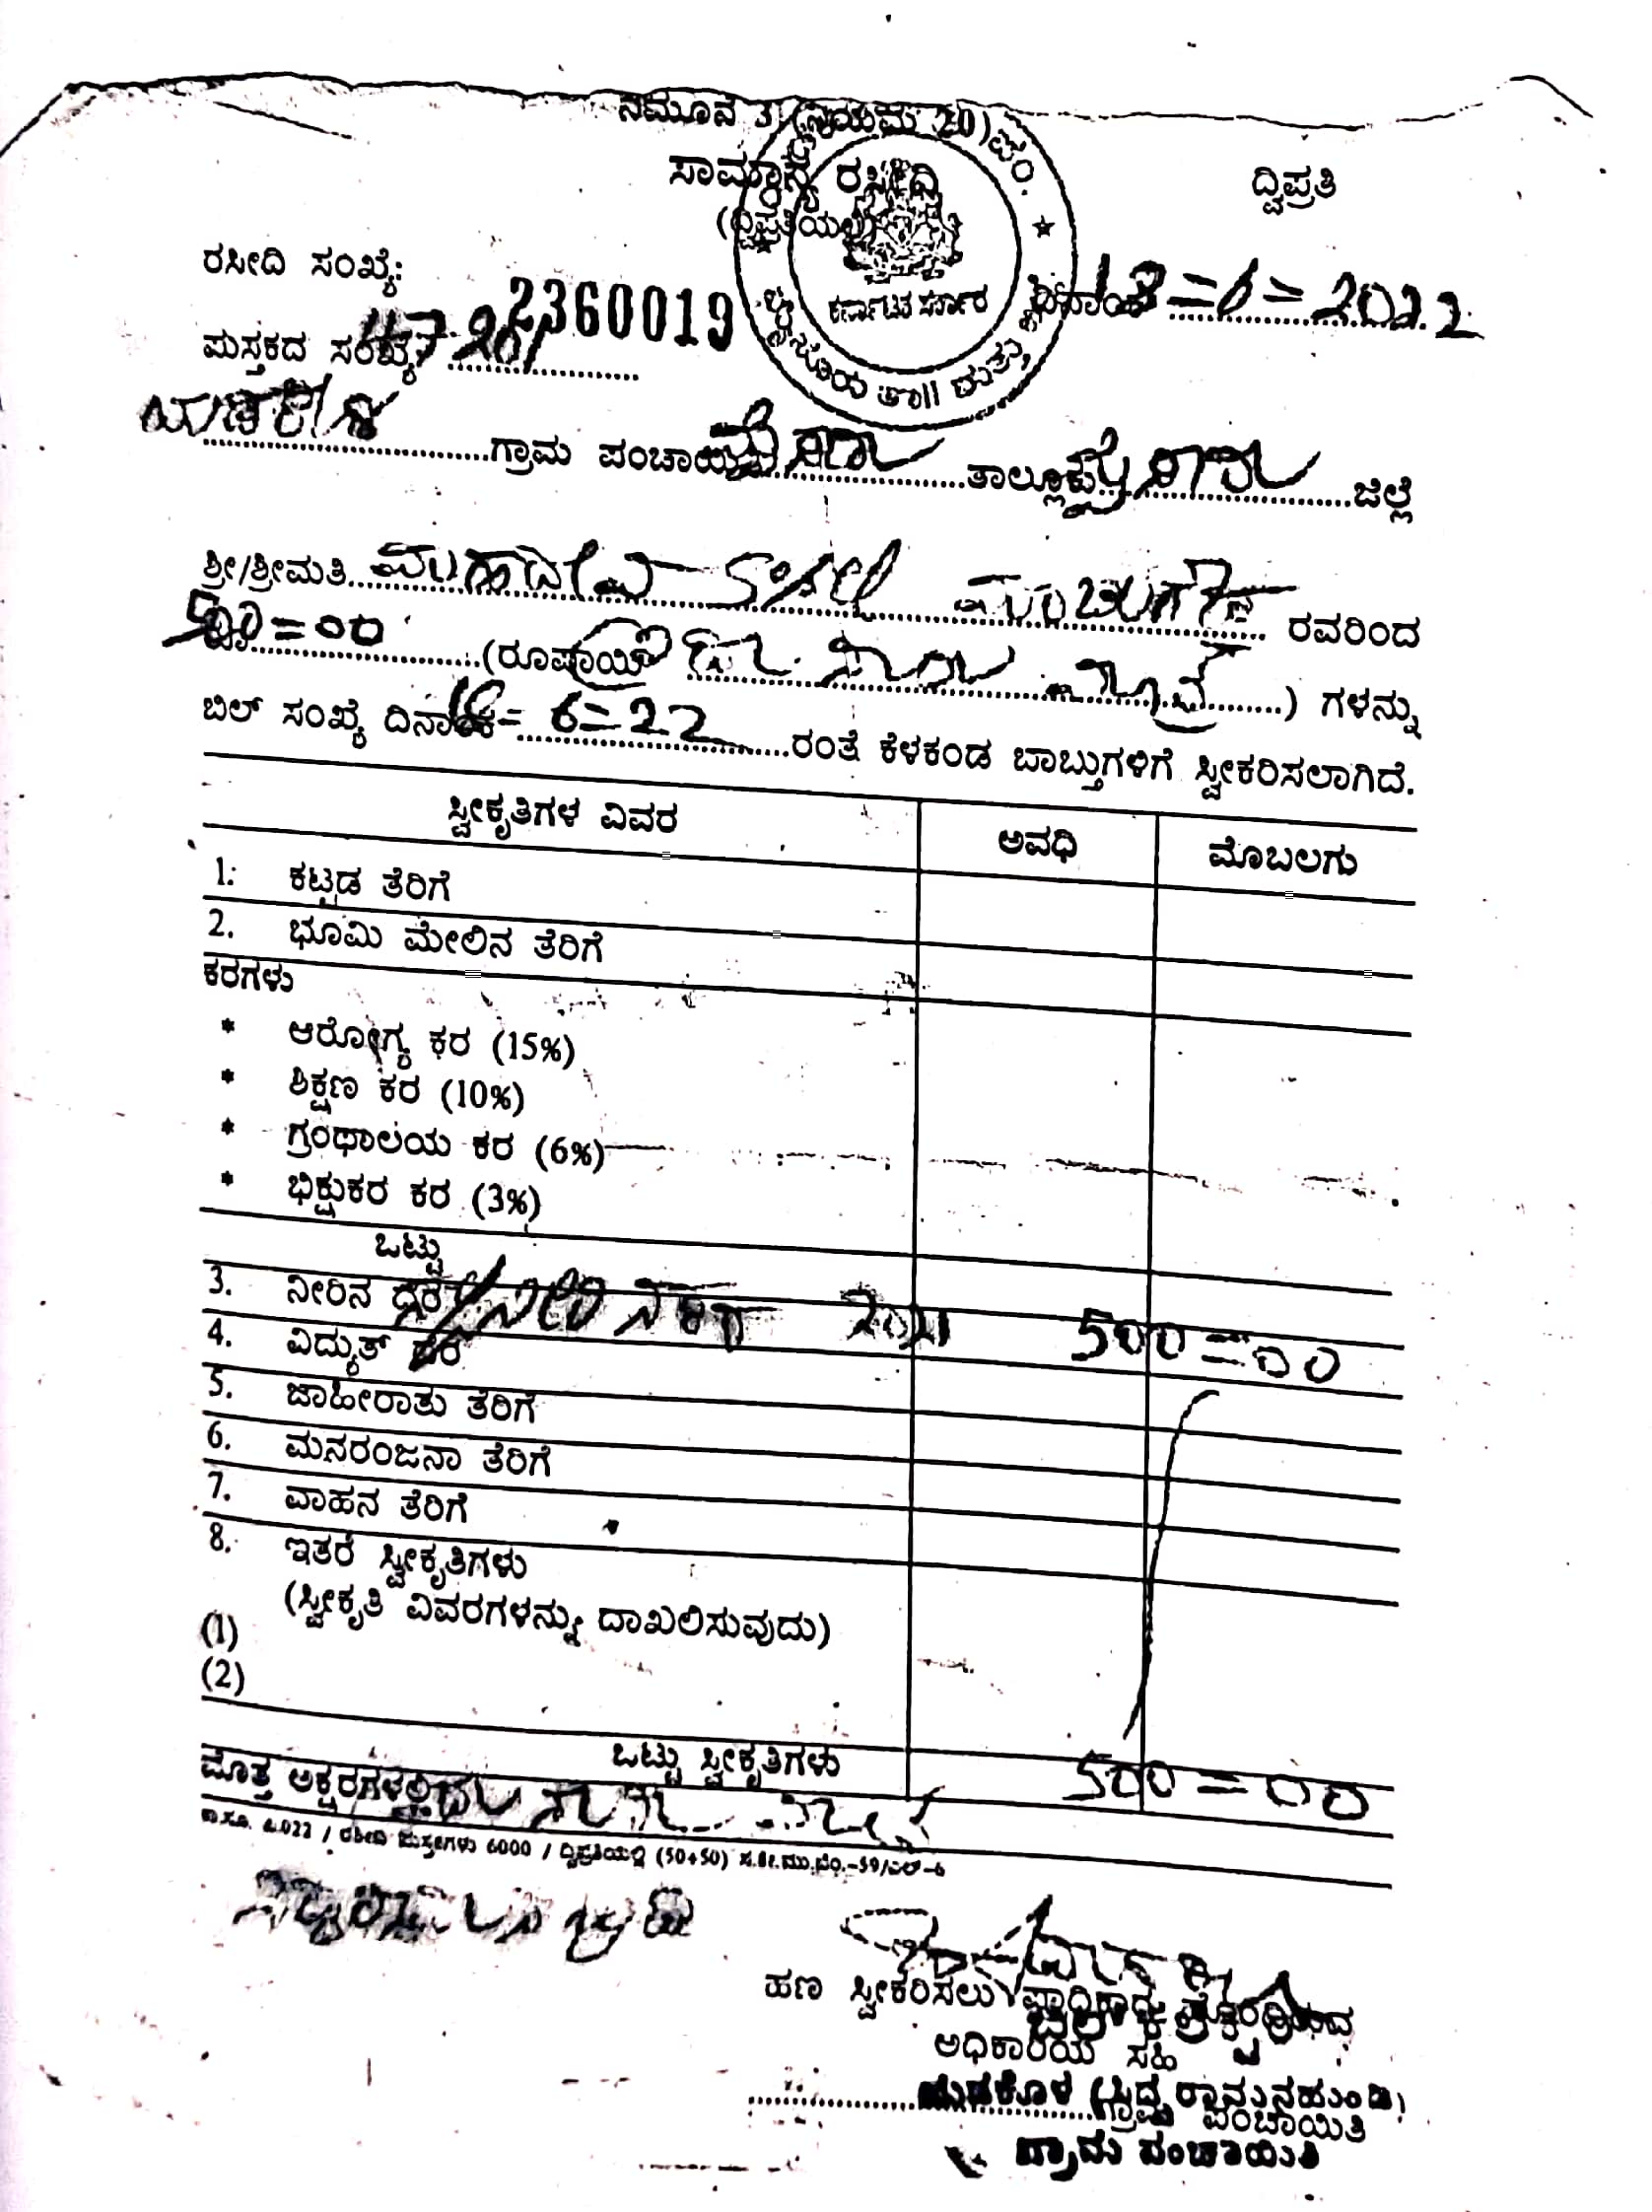 ನಮೂನೆ 3 (ನಿಯಮ 20)
ಸಾಮಾನ್ಯ ರಸೀದಿ
ದ್ವಿಪ್ರತಿ
(ದ್ವಿಪ್ರತಿಯಲ್ಲಿ)
ಕರ್ನಾಟಕ ಸರ್ಕಾರ
ರಸೀದಿ ಸಂಖ್ಯೆ: 2360019
ದಿನಾಂಕ 18=6=2022
ಪುಸ್ತಕದ ಸಂಖ್ಯೆ
ಗ್ರಾಮ ಪಂಚಾಯತಿ ಮೈಸೂರು ತಾಲ್ಲೂಕು ಮೈಸೂರು ಜಿಲ್ಲೆ
ಶ್ರೀ/ಶ್ರೀಮತಿ ಮಹಾದೇವಿ ರವರಿಂದ
500=00 (ರೂಪಾಯಿ ಐದು ನೂರು ಮಾತ್ರ) ಗಳನ್ನು
ಬಿಲ್ ಸಂಖ್ಯೆ ದಿನಾಂಕ 18=6=22 ರಂತೆ ಕೆಳಕಂಡ ಬಾಬ್ತುಗಳಿಗೆ ಸ್ವೀಕರಿಸಲಾಗಿದೆ.
ಸ್ವೀಕೃತಿಗಳ ವಿವರ ಅವಧಿ ಮೊಬಲಗು
1. ಕಟ್ಟಡ ತೆರಿಗೆ
2. ಭೂಮಿ ಮೇಲಿನ ತೆರಿಗೆ
ಕರಗಳು
* ಆರೋಗ್ಯ ಕರ (15%)
* ಶಿಕ್ಷಣ ಕರ (10%)
* ಗ್ರಂಥಾಲಯ ಕರ (6%)
* ಭಿಕ್ಷುಕರ ಕರ (3%)
ಒಟ್ಟು
3. ನೀರಿನ ದರ 500=00
4. ವಿದ್ಯುತ್ ದರ
5. ಜಾಹೀರಾತು ತೆರಿಗೆ
6. ಮನರಂಜನಾ ತೆರಿಗೆ
7. ವಾಹನ ತೆರಿಗೆ
8. ಇತರೆ ಸ್ವೀಕೃತಿಗಳು
(ಸ್ವೀಕೃತಿ ವಿವರಗಳನ್ನು ದಾಖಲಿಸುವುದು)
(1)
(2)
ಒಟ್ಟು ಸ್ವೀಕೃತಿಗಳು 500=00
ಮೊತ್ತ ಅಕ್ಷರಗಳಲ್ಲಿ ಐದು ನೂರು ಮಾತ್ರ
/ ರಶೀದಿ ಪುಸ್ತಕಗಳು 6000 / ದ್ವಿಪ್ರತಿಯಲ್ಲಿ (50+50) ಸ.ಕೇ.ಮು.ಬೆಂ.-59/ಎಲ್-6
ಹಣ ಸ್ವೀಕರಿಸಲು
ಬಿಲ್ ಕಲೆಕ್ಟರ್
ಅಧಿಕಾರಿಯ ಸಹಿ
ಯಡಕೊಳ (ಸಿದ್ದರಾಮನಹುಂಡಿ)
ಗ್ರಾಮ ಪಂಚಾಯಿತಿ
ಗ್ರಾಮ ಪಂಚಾಯಿತಿ